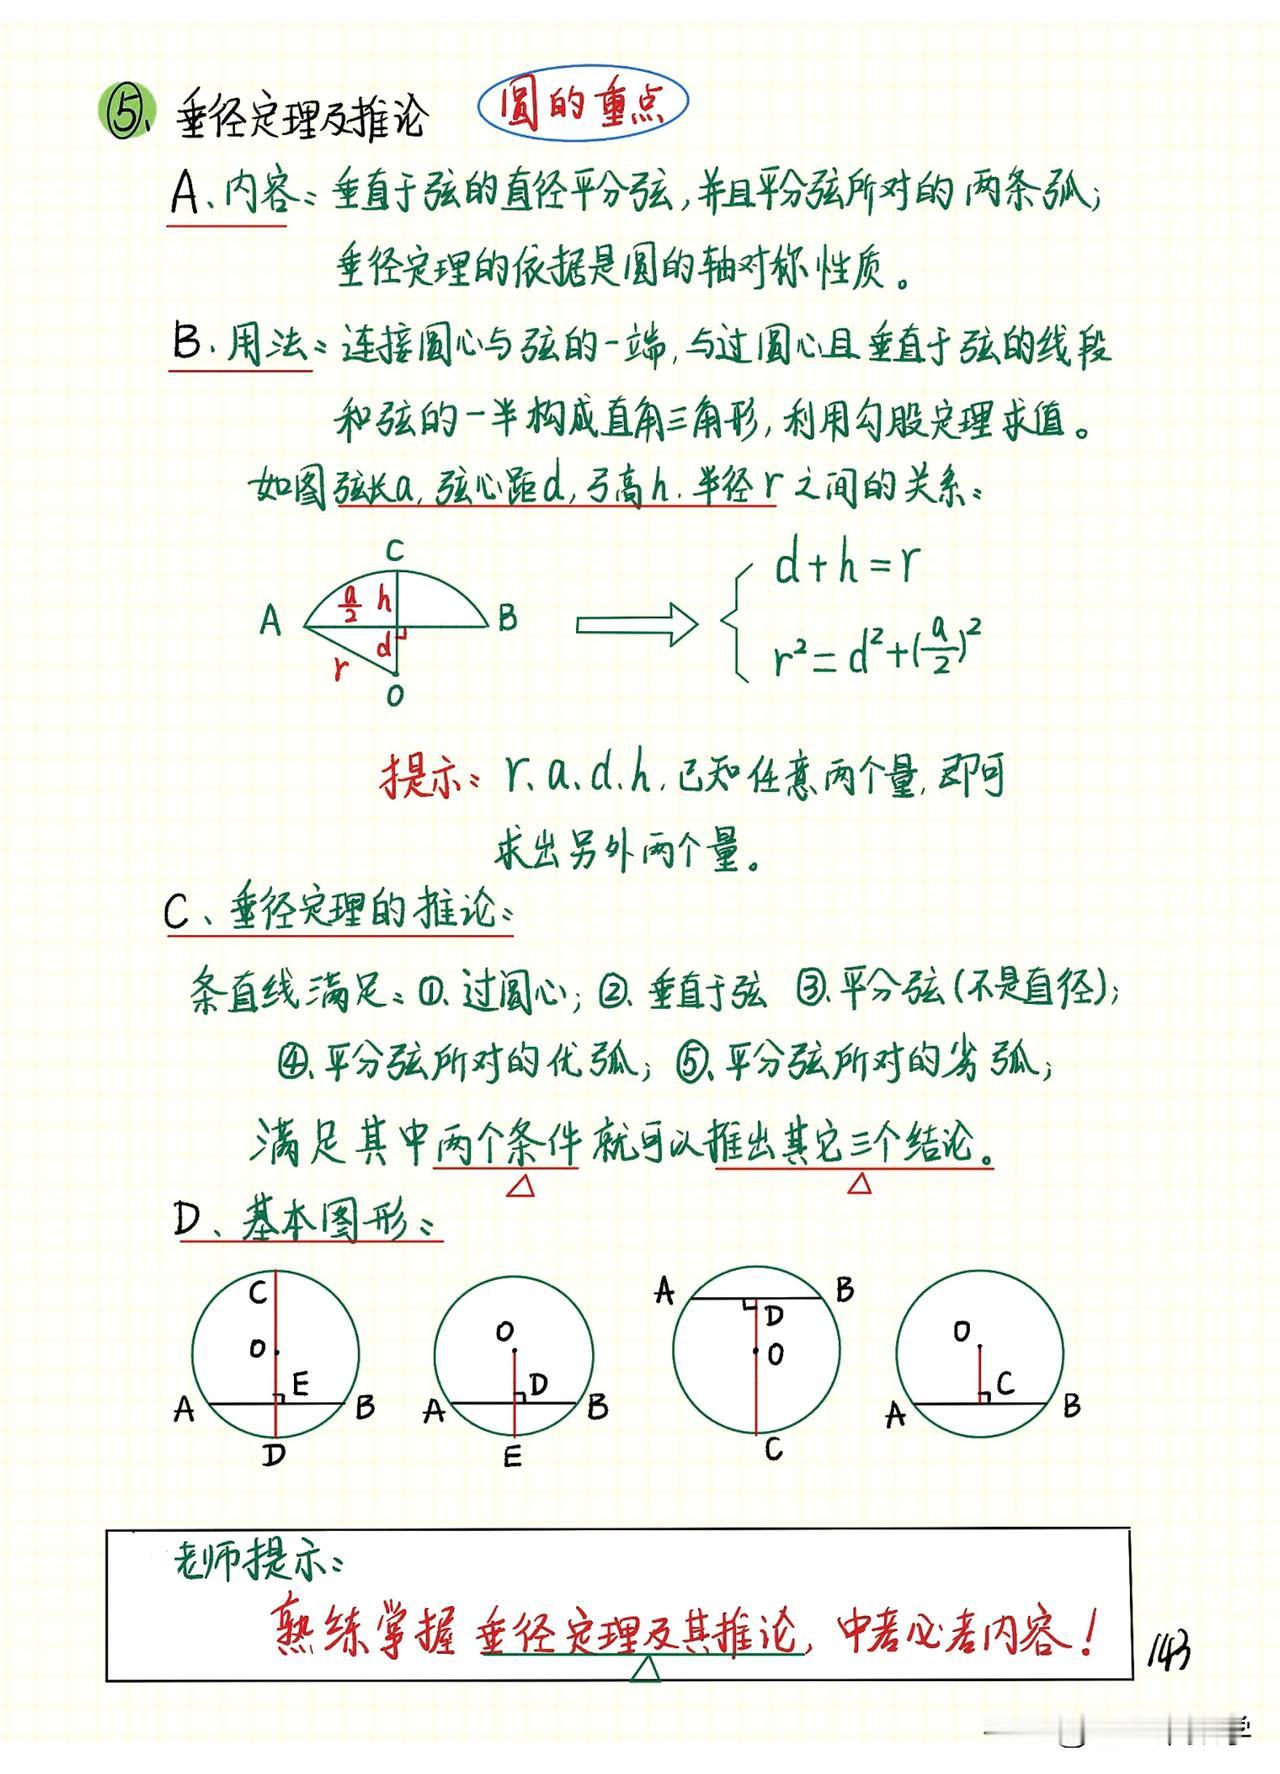 ⑤、垂径定理及推论 圆的重点
A、内容：垂直于弦的直径平分弦，并且平分弦所对的两条弧；
垂径定理的依据是圆的轴对称性质。
B.用法：连接圆心与弦的一端，与过圆心且垂直于弦的线段
和弦的一半构成直角三角形，利用勾股定理求值。
如图弦长a，弦心距d，弓高h.半径r之间的关系：
C
A a/2 h B
d
r
O
d+h=r
r²=d²+(a/2)²
提示：r、a、d、h，已知任意两个量，即可
求出另外两个量。
C、垂径定理的推论：
条直线满足：①、过圆心；②、垂直于弦 ③、平分弦(不是直径)；
④、平分弦所对的优弧；⑤、平分弦所对的劣弧；
满足其中两个条件就可以推出其它三个结论。
D、基本图形：
C
O
E
A B
D
O
D
A B
E
A B
D
O
C
O
C
A B
老师提示：
熟练掌握垂径定理及其推论，中考必考内容！
143